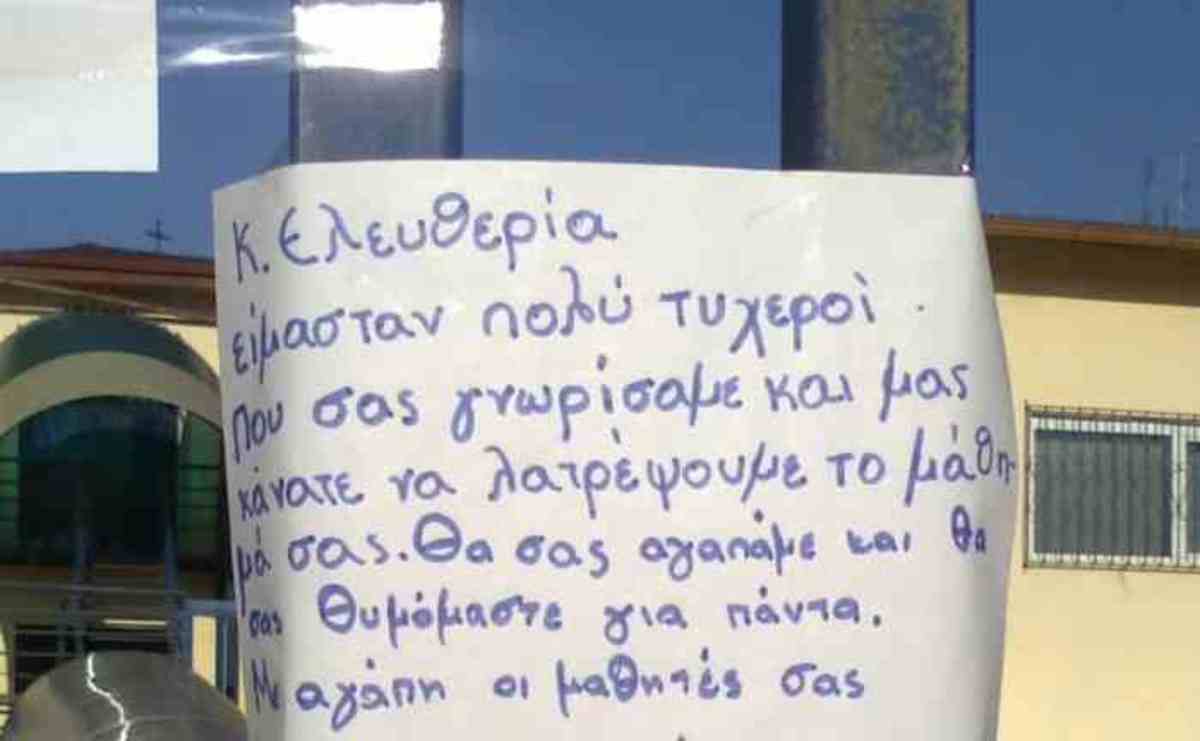 Κ. Ελευθερία
είμασταν πολύ τυχεροί
που σας γνωρίσαμε και μας
κάνατε να λατρέψουμε το μάθη-
μά σας. Θα σας αγαπάμε και θα
σας θυμόμαστε για πάντα.
Με αγάπη οι μαθητές σας